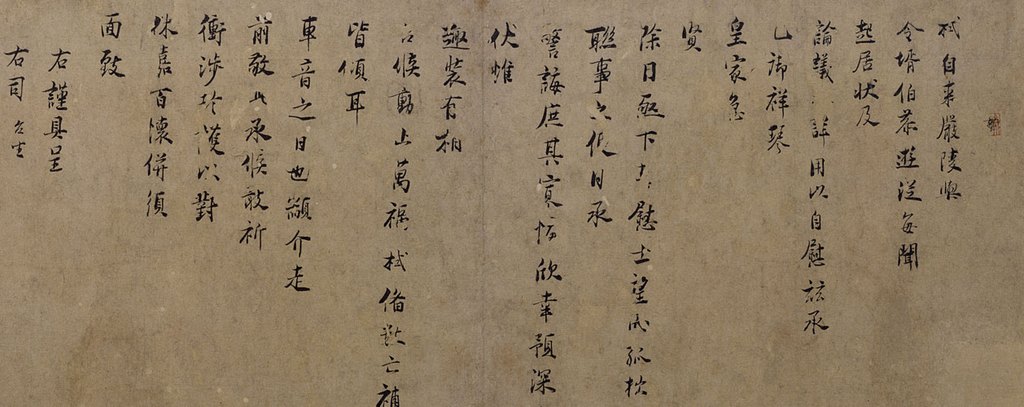 栻自來嚴陵與
令壻伯恭遊從每聞
起居狀及
論議之詳用以自慰茲承
乙御祥琴
皇家急
賢
除目亟下大慰士望 孤拙
聯事 日承
警誨庶其寡悔欣幸預深
伏惟
趣裝有期
台候動止萬福栻備數亡補
皆傾耳
車音之日也顓介走
前敬此承候敢祈
衛涉珍護以對
休嘉百懷併須
面致
右謹具呈
右司 台坐